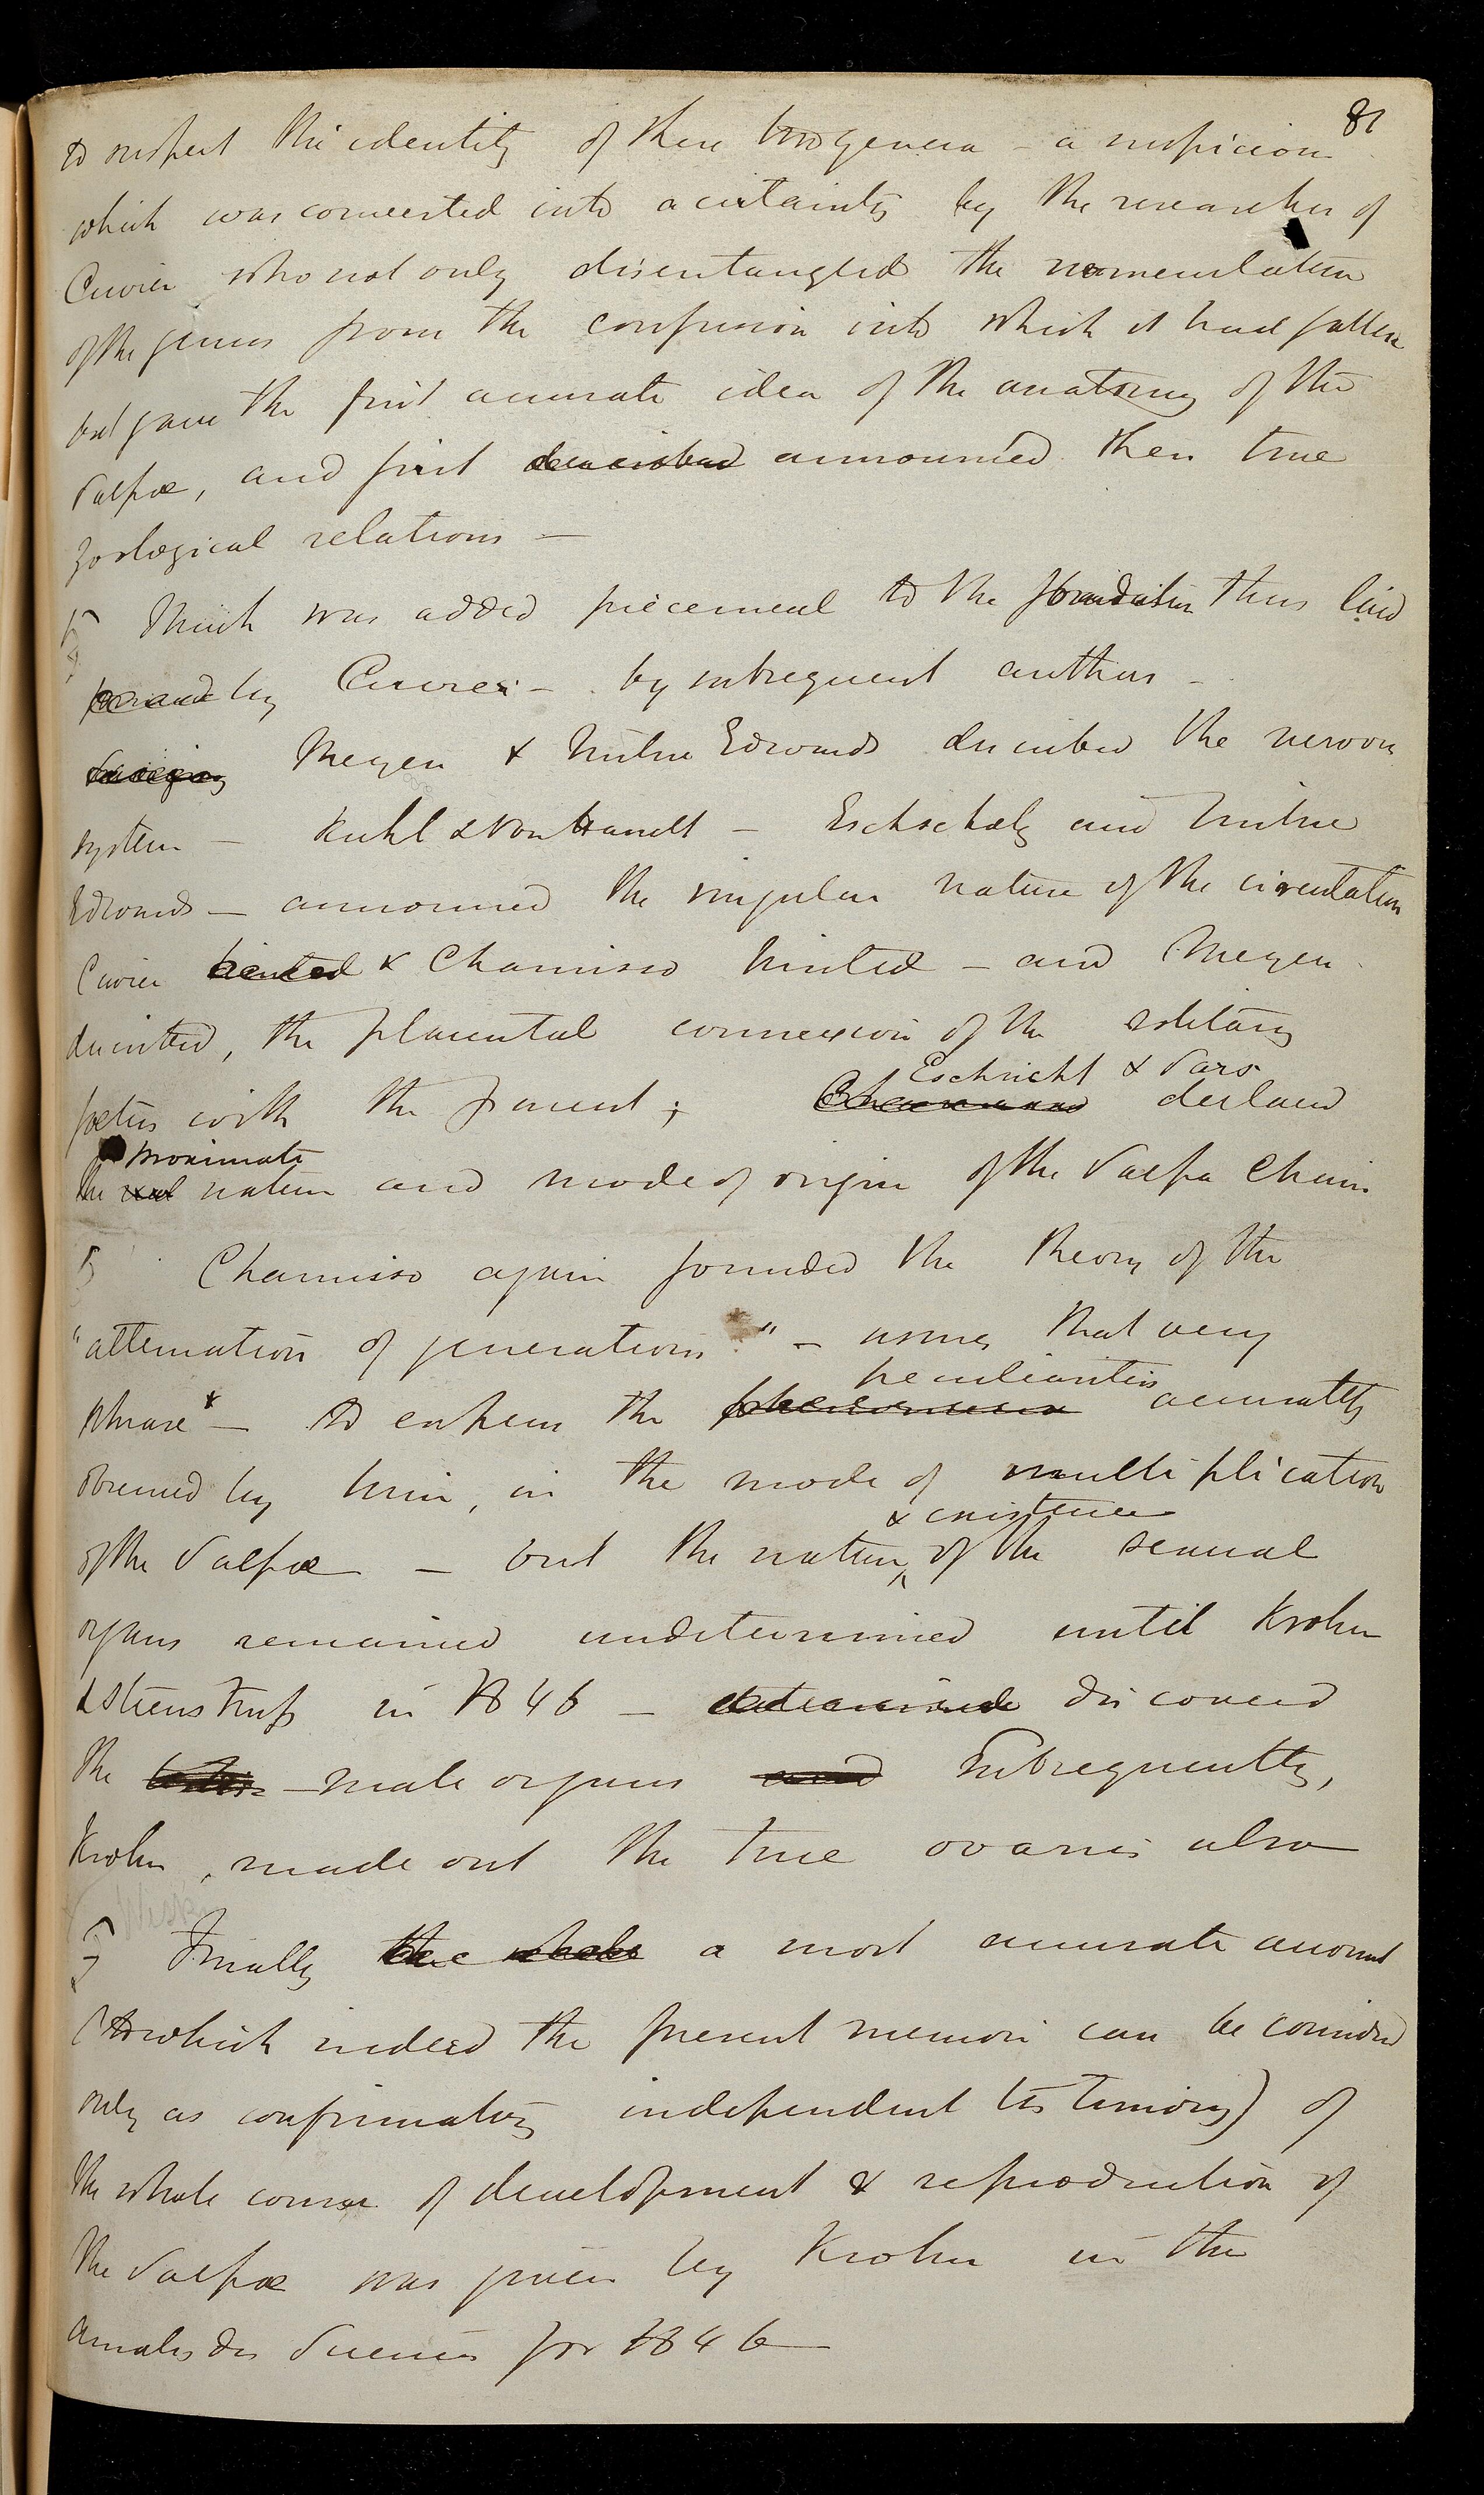 81
to suspect the identity of these two genera – a suspicion
which was converted into a certainty by the researches of
Cuvier who not only disentangled the nomenclature
of the genus from the confusion into which it had fallen
but gave the first accurate idea of the anatomy of the
Salpæ, and first described announced their true
zoological relations –
Much was added piecemeal to the foundation thus laid
by Cuvier – by subsequent authors –
Meyen & Milne Edwards described the nervous
system – Kuhl & Van Hasselt – Eschscholtz and Milne
Edwards – announced the singular nature of the circulation
Cuvier hinted & Chamisso hinted – and Meyen
described, the placental connexion of the solitary
Eschricht & Sars
fœtus with the parent; Chamisso declared
proximate
the real nature and mode of origin of the Salpa chain
Chamisso again founded the theory of the
"alternation of generations" – using that very
peculiarities
phrase* – to express the phenomena accurately
observed by him, in the mode of multiplication
& existence
of the Salpæ – but the nature of the sexual
organs remained undetermined until Krohn
& Steenstrup in 1846 – determined discovered
the testis – male organs and Subsequently,
Krohn, made out the true ovaries also
Finally the whole a most accurate account
(to which indeed the present memoir can be considered
only as confirmatory independent testimony) of
the whole course of development & reproduction of
the Salpæ was given by Krohn in the
Annales des Sciences for 1846